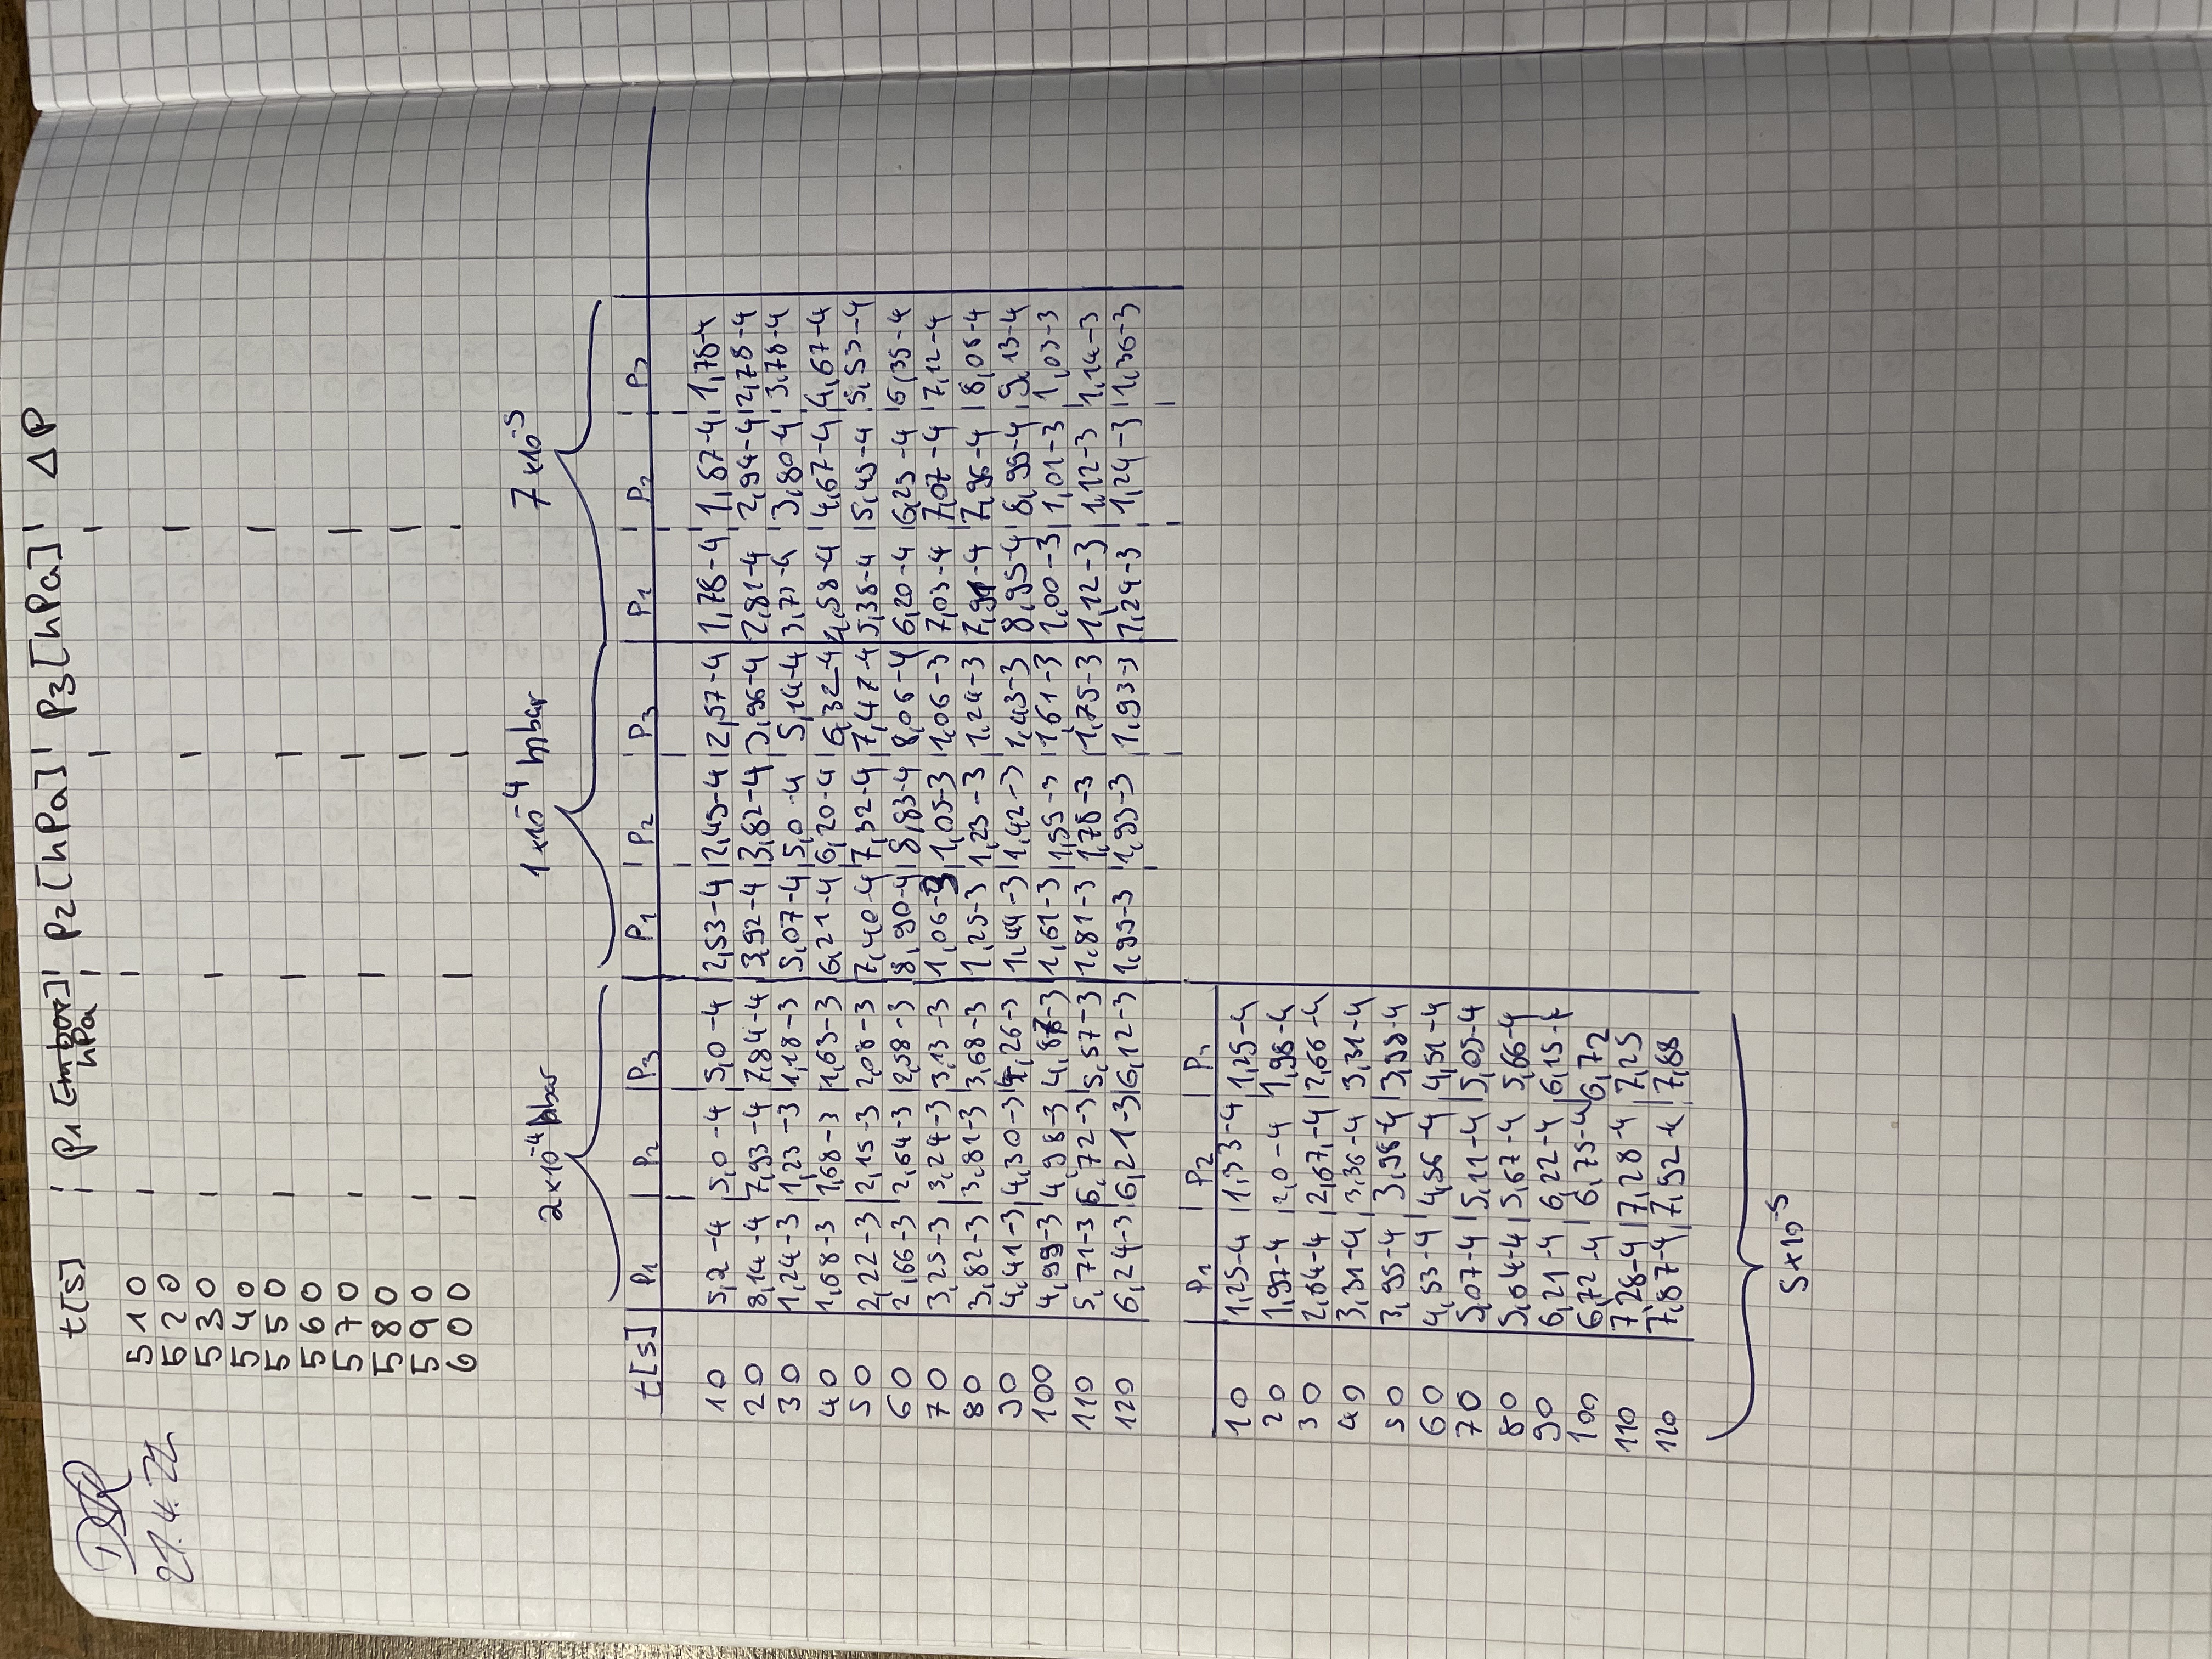 t[s] P1 [mbar] P2 [hPa] P3 [hPa] ΔP
hPa
21.4.22
510
520
530
540
550
560
570
580
590
600
2×10⁻⁴ mbar 1×10⁻⁴ mbar 7×10⁻⁵
t[s] P1 P2 P3 P1 P2 P3 P1 P2 P3
10 5,2-4 5,0-4 5,0-4 2,53-4 2,45-4 2,57-4 1,78-4 1,87-4 1,78-4
20 8,14-4 7,93-4 7,84-4 3,92-4 3,82-4 3,96-4 2,81-4 2,94-4 2,78-4
30 1,24-3 1,23-3 1,18-3 5,07-4 5,0-4 5,14-4 3,73-4 3,80-4 3,78-4
40 1,68-3 1,68-3 1,63-3 6,21-4 6,20-4 6,32-4 4,58-4 4,67-4 4,67-4
50 2,22-3 2,15-3 2,08-3 7,40-4 7,32-4 7,47-4 5,38-4 5,45-4 5,53-4
60 2,66-3 2,64-3 2,58-3 8,90-4 8,83-4 8,06-4 6,20-4 6,25-4 6,35-4
70 3,25-3 3,24-3 3,13-3 1,06-3 1,05-3 1,06-3 7,03-4 7,07-4 7,12-4
80 3,82-3 3,81-3 3,68-3 1,25-3 1,23-3 1,24-3 7,91-4 7,96-4 8,05-4
90 4,41-3 4,30-3 4,26-3 1,44-3 1,42-3 1,43-3 8,95-4 8,99-4 9,13-4
100 4,99-3 4,98-3 4,87-3 1,61-3 1,59-3 1,61-3 1,00-3 1,01-3 1,03-3
110 5,71-3 5,72-3 5,57-3 1,81-3 1,78-3 1,75-3 1,12-3 1,12-3 1,14-3
120 6,24-3 6,21-3 6,12-3 1,95-3 1,93-3 1,93-3 1,24-3 1,24-3 1,36-3
P1 P2 P3
10 1,25-4 1,33-4 1,25-4
20 1,97-4 2,0-4 1,98-4
30 2,64-4 2,67,-4 2,66-4
40 3,31-4 3,36-4 3,31-4
50 3,95-4 3,98-4 3,98-4
60 4,53-4 4,56-4 4,51-4
70 5,07-4 5,11-4 5,05-4
80 5,64-4 5,67-4 5,66-4
90 6,21-4 6,22-4 6,15-4
100 6,72-4 6,75-4 6,72
110 7,28-4 7,28-4 7,25
120 7,87-4 7,92-4 7,88
5×10⁻⁵